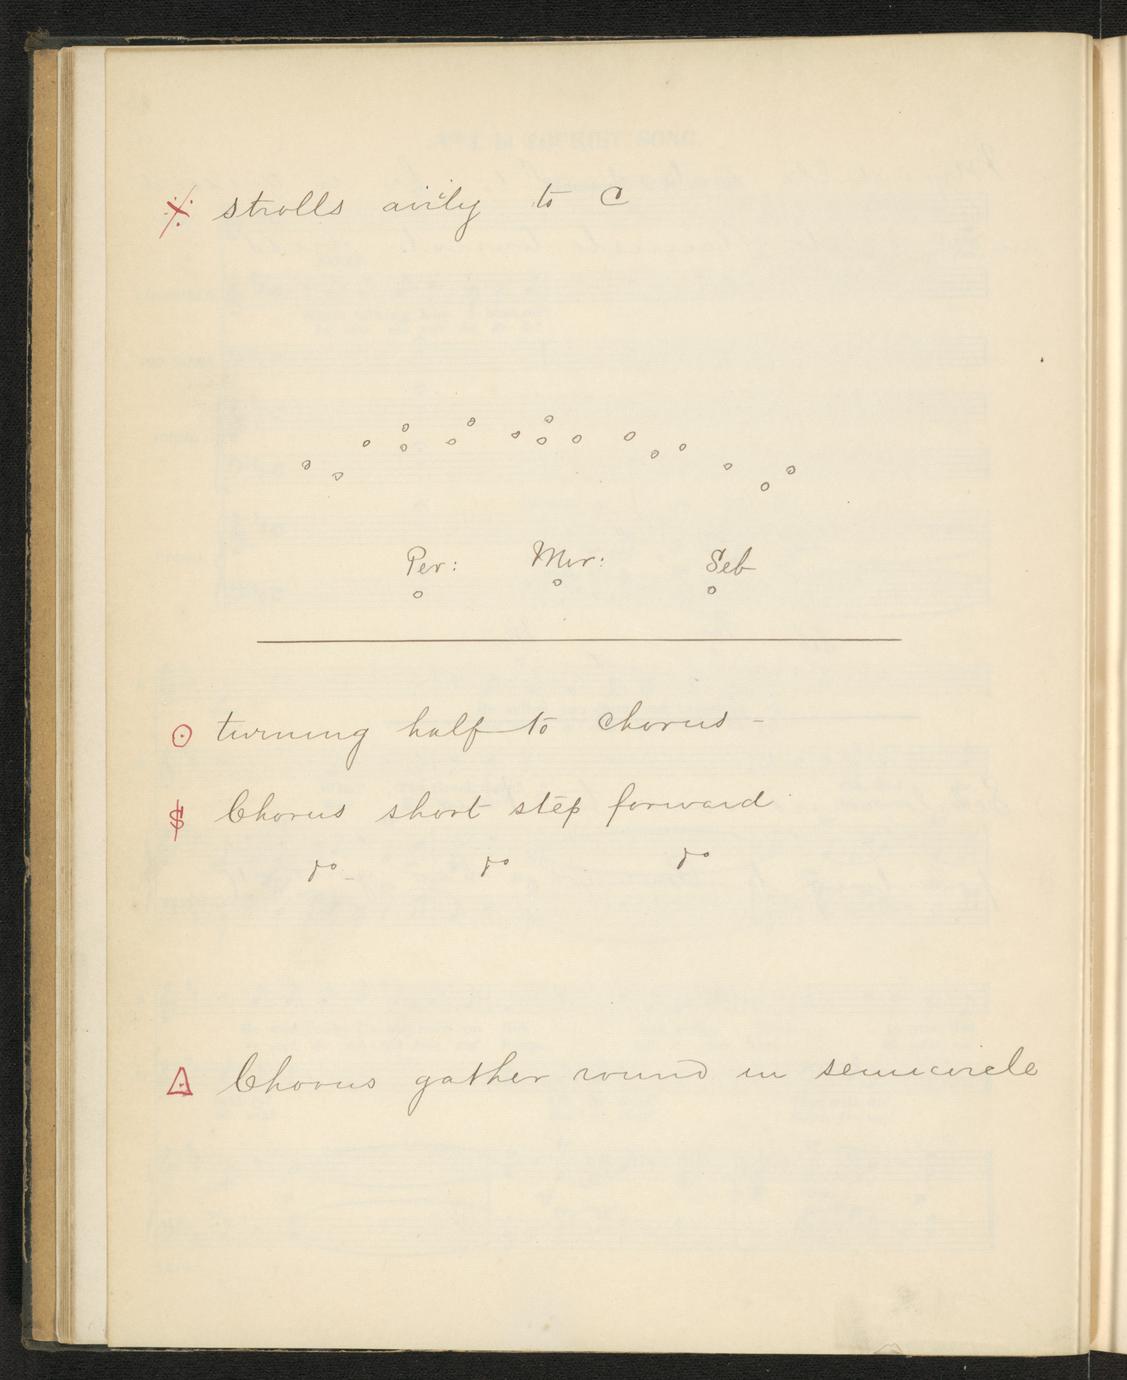 strolls airily to C
Per: Mir: Seb
turning half to chorus -
Chorus short step forward
do do do
Chorus gather round in semicircle